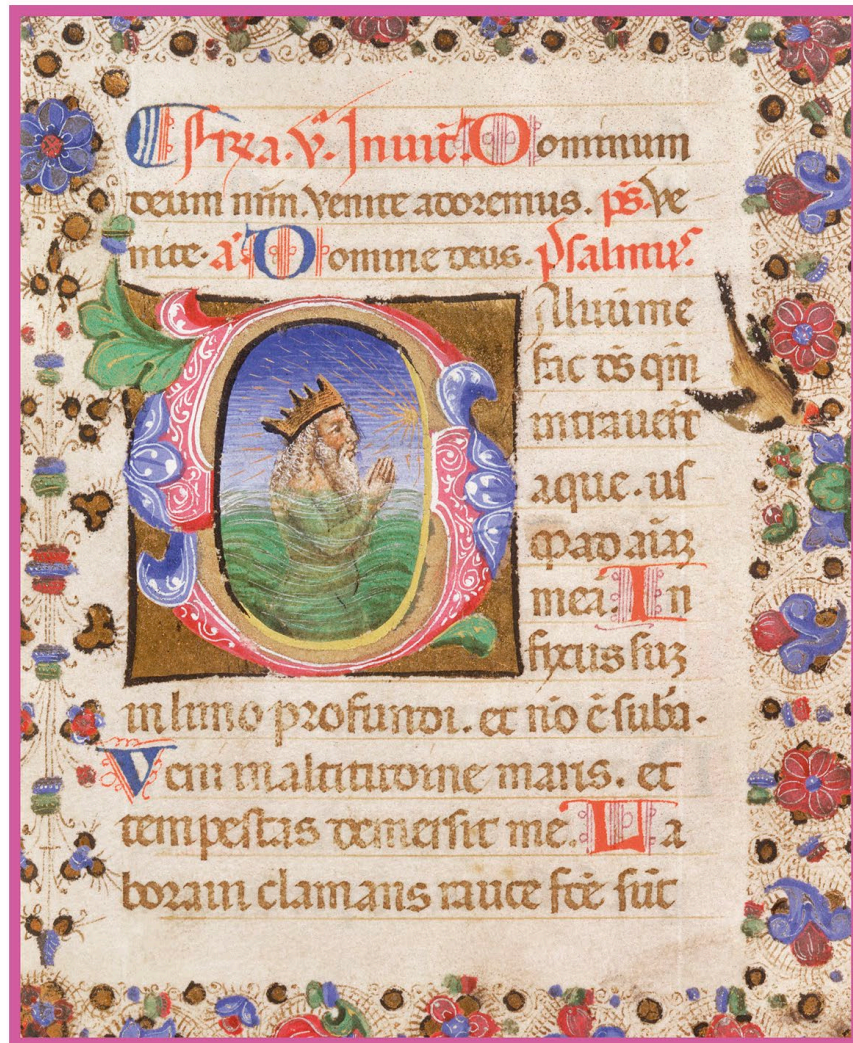 Feria. v. Inuit. Dominum
deum nrm. Venite adoremus. ps. Ve
nite. a. Domine deus. psalmus.
Saluum me
fac ds qm
intrauert
aque. us
q ad aiaz
mea. In
fixus suz
in limo profundi. et no e suba.
Veni in altitudine maris. et
tempestas demersit me. La
boraui clamans rauce fce sut